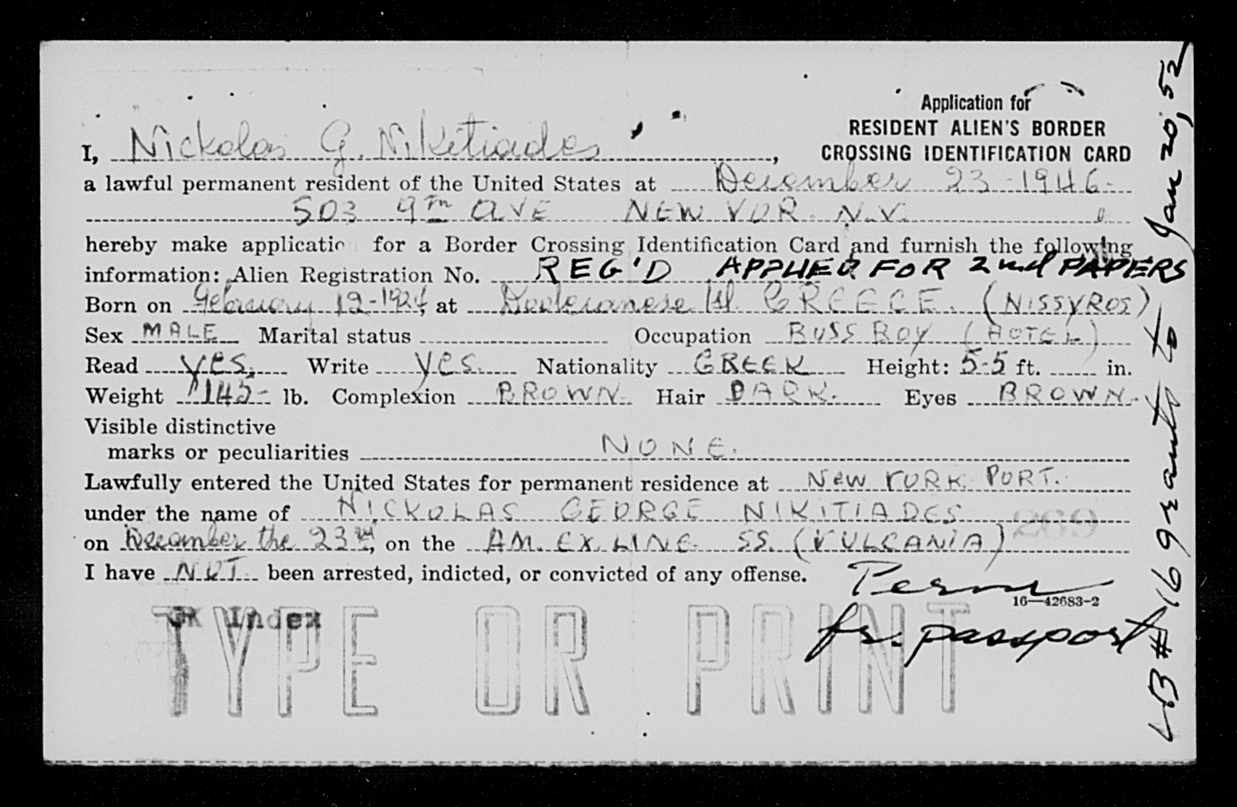 Application for
RESIDENT ALIEN'S BORDER
CROSSING IDENTIFICATION CARD
I, Nickolas G. Nikitiades,
a lawful permanent resident of the United States at December 23-1946-
503 9TH AVE NEW YOR. N.Y.
hereby make application for a Border Crossing Identification Card and furnish the following
information: Alien Registration No. REG'D APPLIED FOR 2nd PAPERS
Born on February 12-1924, at Dodecanese Isl. GREECE. (NISSYROS)
Sex MALE Marital status Occupation BUSS BOY (HOTEL)
Read YES, Write YES. Nationality GREEK Height: 5-5 ft. in.
Weight 145- lb. Complexion BROWN. Hair DARK. Eyes BROWN.
Visible distinctive
marks or peculiarities NONE.
Lawfully entered the United States for permanent residence at NEW YORK PORT.
under the name of NICKOLAS GEORGE NIKITIADES
269
on December the 23rd, on the AM. EX. LINE. SS. (VULCANIA)
I have NOT been arrested, indicted, or convicted of any offense.
Perm
16—42683-2
fr. passport
Index
TYPE OR PRINT
#16 grants to Jan 20, 52